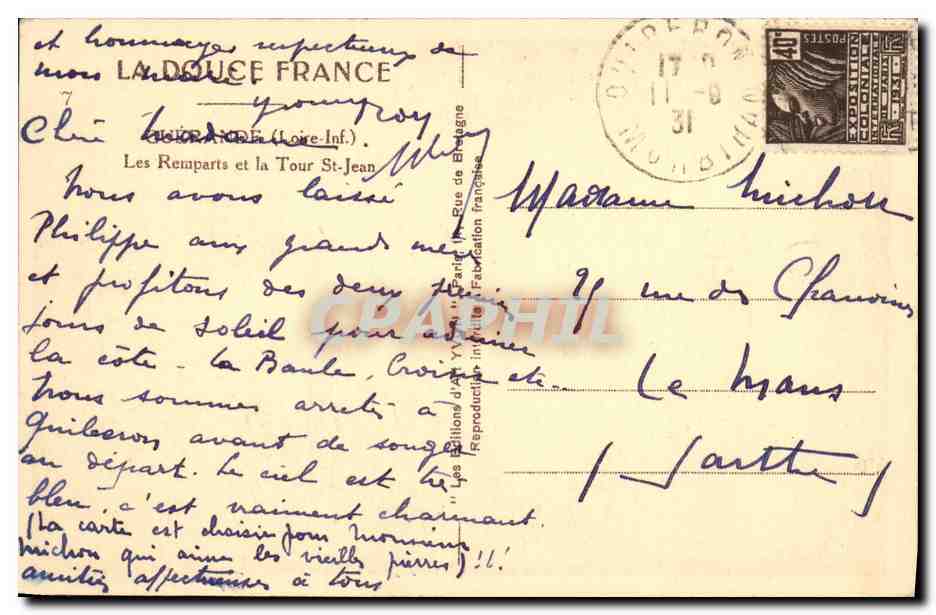 et hommages respectueux de
mon mari.
LA DOUCE FRANCE
Yvonne Roy
Chère Madame
GUÉRANDE (Loire-Inf.)
Les Remparts et la Tour St-Jean
Nous avons laissé
Philippe aux grands
et profitons des deux
jours de soleil pour admirer
la côte - La Baule, Croisic etc..
Nous sommes arrêtés à
Quiberon avant de songer
au départ. Le ciel est très
bleu, c'est vraiment charmant.
(La carte est choisie pour Monsieur
Michon qui aime les vieilles pierres) !!!
amitiés affectueuses à tous
"Les Editions d'Art YVON" Paris, Rue de Bretagne
Reproduction interdite Fabrication française
QUIBERON
MORBIHAN
17
11 -8
31
40c
POSTES
EXPOSITION
COLONIALE
INTERNATIONALE
PARIS
Madame Michon
91 rue des Chanoines
Le Mans
(Sarthe)
CPAPHIL